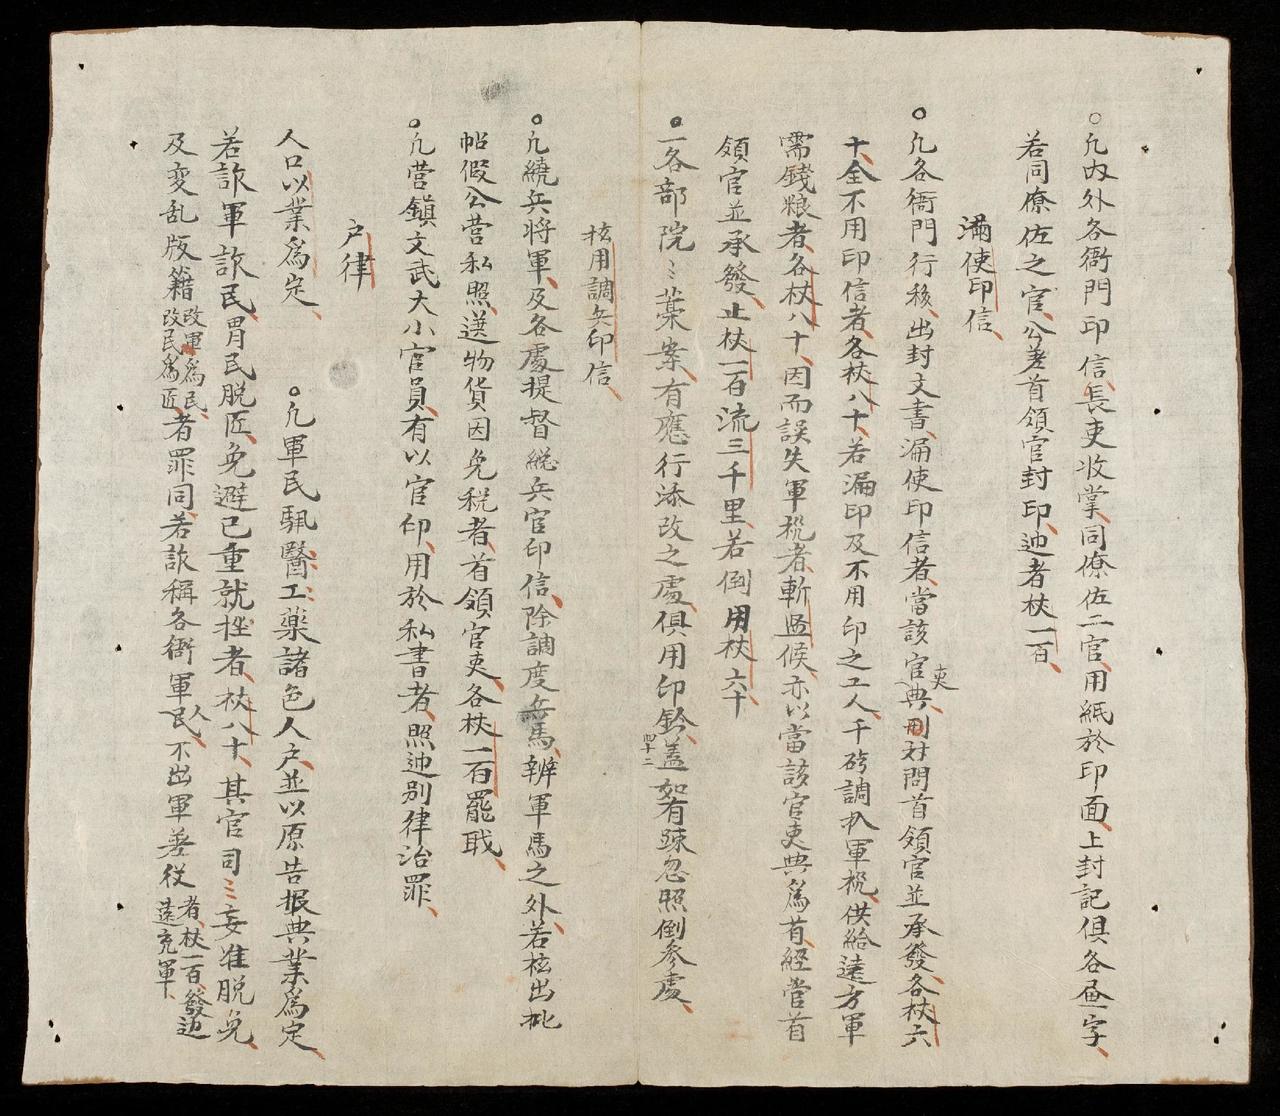 ○凢內外各衙門印信長吏收掌同僚佐二官用紙於印面上封記俱各畫字
若同僚佐之官公差首領官封印違者杖一百
漏使印信
○凢各衙門行移出封文書漏使印信者當該官吏典刑對問首領官並承發各杖六
十全不用印信者各杖八十若漏印及不用印之工人干碍調机軍机供給遠方軍
需錢粮者各杖八十因而誤失軍机者斬監候亦以當該官吏典為首經管首
領官並承發止杖一百流三千里若倒用杖六十
○一各部院〻藁案有應行添改之處俱用印鈐盖如有疎忽照倒參處
四十二
𢪛用調兵印信
○凢繞兵將軍及各處提督緫兵官印信除調度兵馬辨軍馬之外若𢪛出批
帖假公营私照送物貨因免税者首領官吏各杖一百罷職
○凢营鎮文武大小官員有以官印用於私書者照違别律治罪
户律
人口以業為定 ○凢軍民駈醫工藥諸色人户並以原告报典業為定
若詐軍詐民冐民脱匠免避已重就輕者杖八十其官司〻妄准脱免
及变乱版籍改軍為民改民為匠者罪同若詐稱各衙軍民人不出軍差役者杖一百發边遠充軍